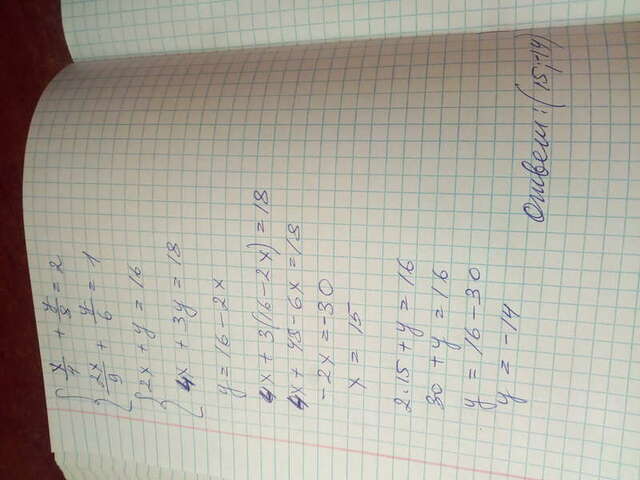 x/4 + y/8 = 2
2x/9 + y/6 = 1
2x + y = 16
4x + 3y = 18
y = 16 - 2x
4x + 3(16 - 2x) = 18
4x + 48 - 6x = 18
-2x = -30
x = 15
2·15 + y = 16
30 + y = 16
y = 16 - 30
y = -14
Ответ: (15; -14)